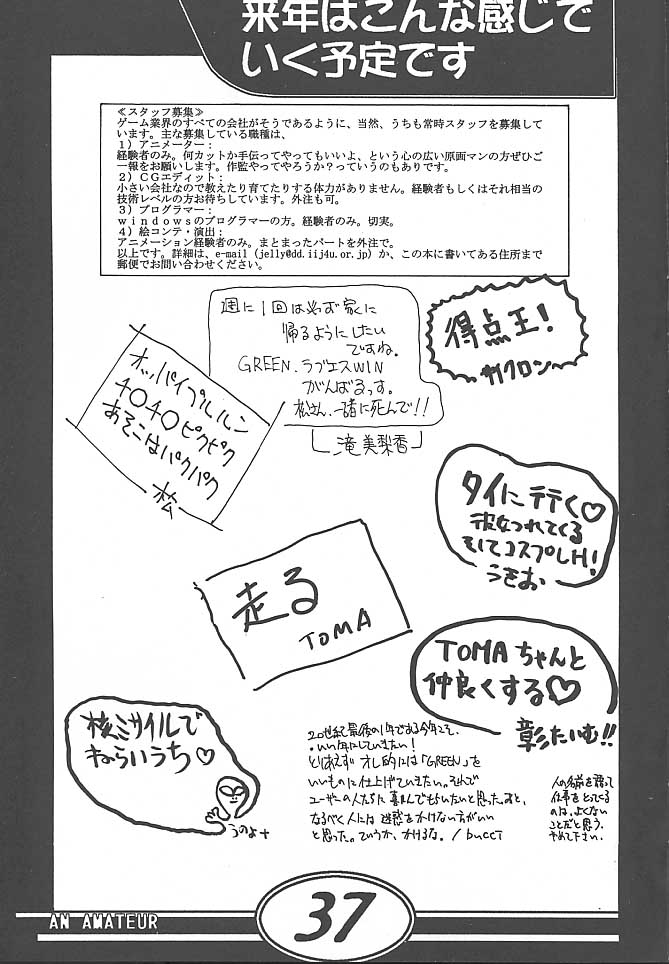 来年はこんな感じで
いく予定です
≪スタッフ募集≫
ゲーム業界のすべての会社がそうであるように、当然、うちも常時スタッフを募集して
います。主な募集している職種は、
１）アニメーター：
経験者のみ。何カットか手伝ってやってもいいよ、という心の広い原画マンの方ぜひご
一報をお願いします。作監やってやろうか？っていうのもありです。
２）ＣＧエディット：
小さい会社なので教えたり育てたりする体力がありません。経験者もしくはそれ相当の
技術レベルの方お待ちしています。外注も可。
３）プログラマー：
ｗｉｎｄｏｗｓのプログラマーの方。経験者のみ。切実。
４）絵コンテ・演出：
アニメーション経験者のみ。まとまったパートを外注で。
以上です。詳細は、e-mail（jelly@dd.iij4u.or.jp）か、この本に書いてある住所まで
郵便でお問い合わせください。
週に1回は必ず家に
帰るようにしたい
ですね。
GREEN、ラブエスWIN
がんばるっす。
松さん、一緒に死んで!!
滝美梨香
得点王！
サイクロン
オッパイプルルン
チ〇チ〇ピクピク
あそこはパクパク
松
タイに行く♡
彼女つれてくる
そしてコスプレH!
うきお
走る
TOMA
TOMAちゃんと
仲良くする♡
彰たいむ!!
核ミサイルで
ねらいうち♡
うのよ+
20世紀最後の1年である今年こそ、
いい年にしていきたい！
とりあえず オレ的には「GREEN」を
いいものに仕上げていきたい。それで
ユーザーの人たちに喜んでもらいたいと思った。あと、
なるべく人には迷惑をかけない方がいい
と思った。ていうか、かけるな。/bucci
人の名前を語って
仕事をとってくる
のは、よくない
ことだと思う。
やめて下さい。
AN AMATEUR
37